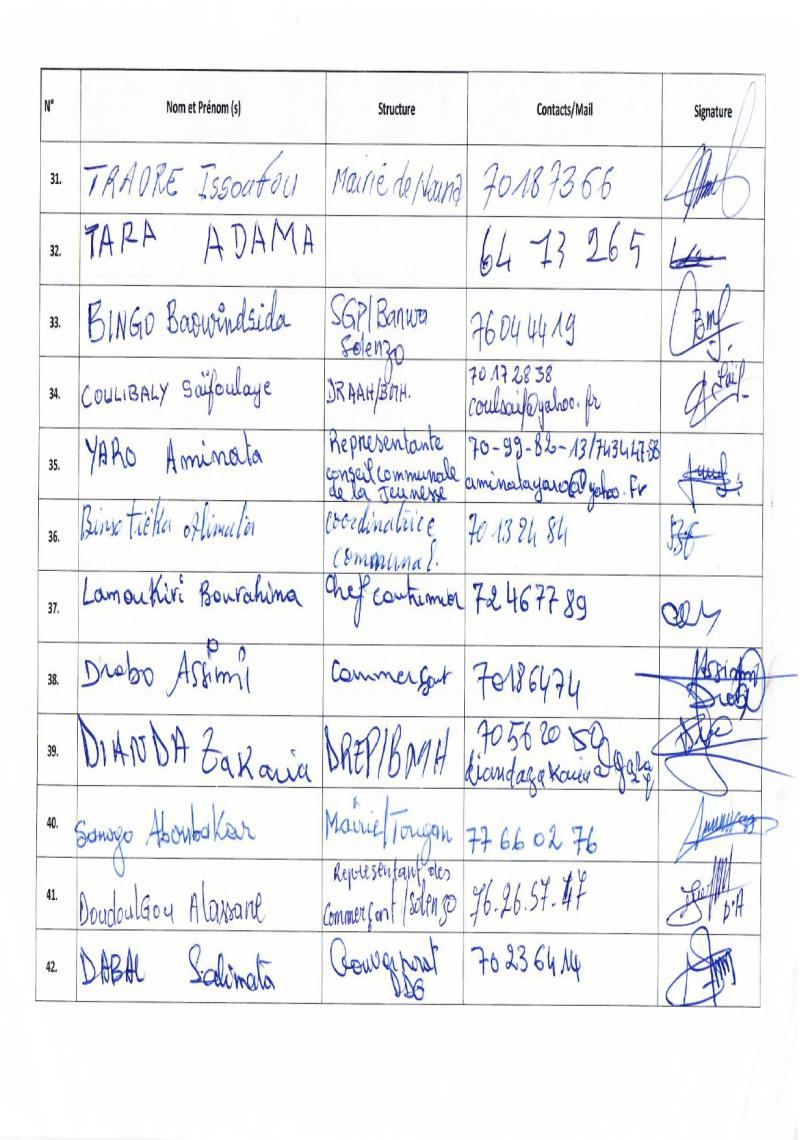 N° Nom et Prénom (s) Structure Contacts/Mail Signature
31. TRAORE Issoufou Mairie de Nouna 70187366
32. TARA ADAMA 64 73 265
33. BINGO Baowindsida SGP/Banwa Solenzo 76044419
34. COULIBALY Saïfoulaye DRAAH/BMH. 70172838
coulsaif@yahoo.fr
35. YARO Aminata Representante
conseil communale
de la Jeunesse
70-99-82-13/74344758
aminatayaro@yahoo.Fr
36. coordinatrice
communal. 70 13 24 84
37. Lamoukiri Bourahima Chef coutumier 72467789
38. Drabo Assimi Commerçant 70186474
39. DIANDA Zakaria DREP/BMH 70 56 20 50
40. Sanogo Aboubakar Mairie/Tougan 77 66 02 76
41. DoudoulGou Alassane Representant des
Commerçant/Solenzo 76.26.57.47
D.A
42. Salimata 70236414